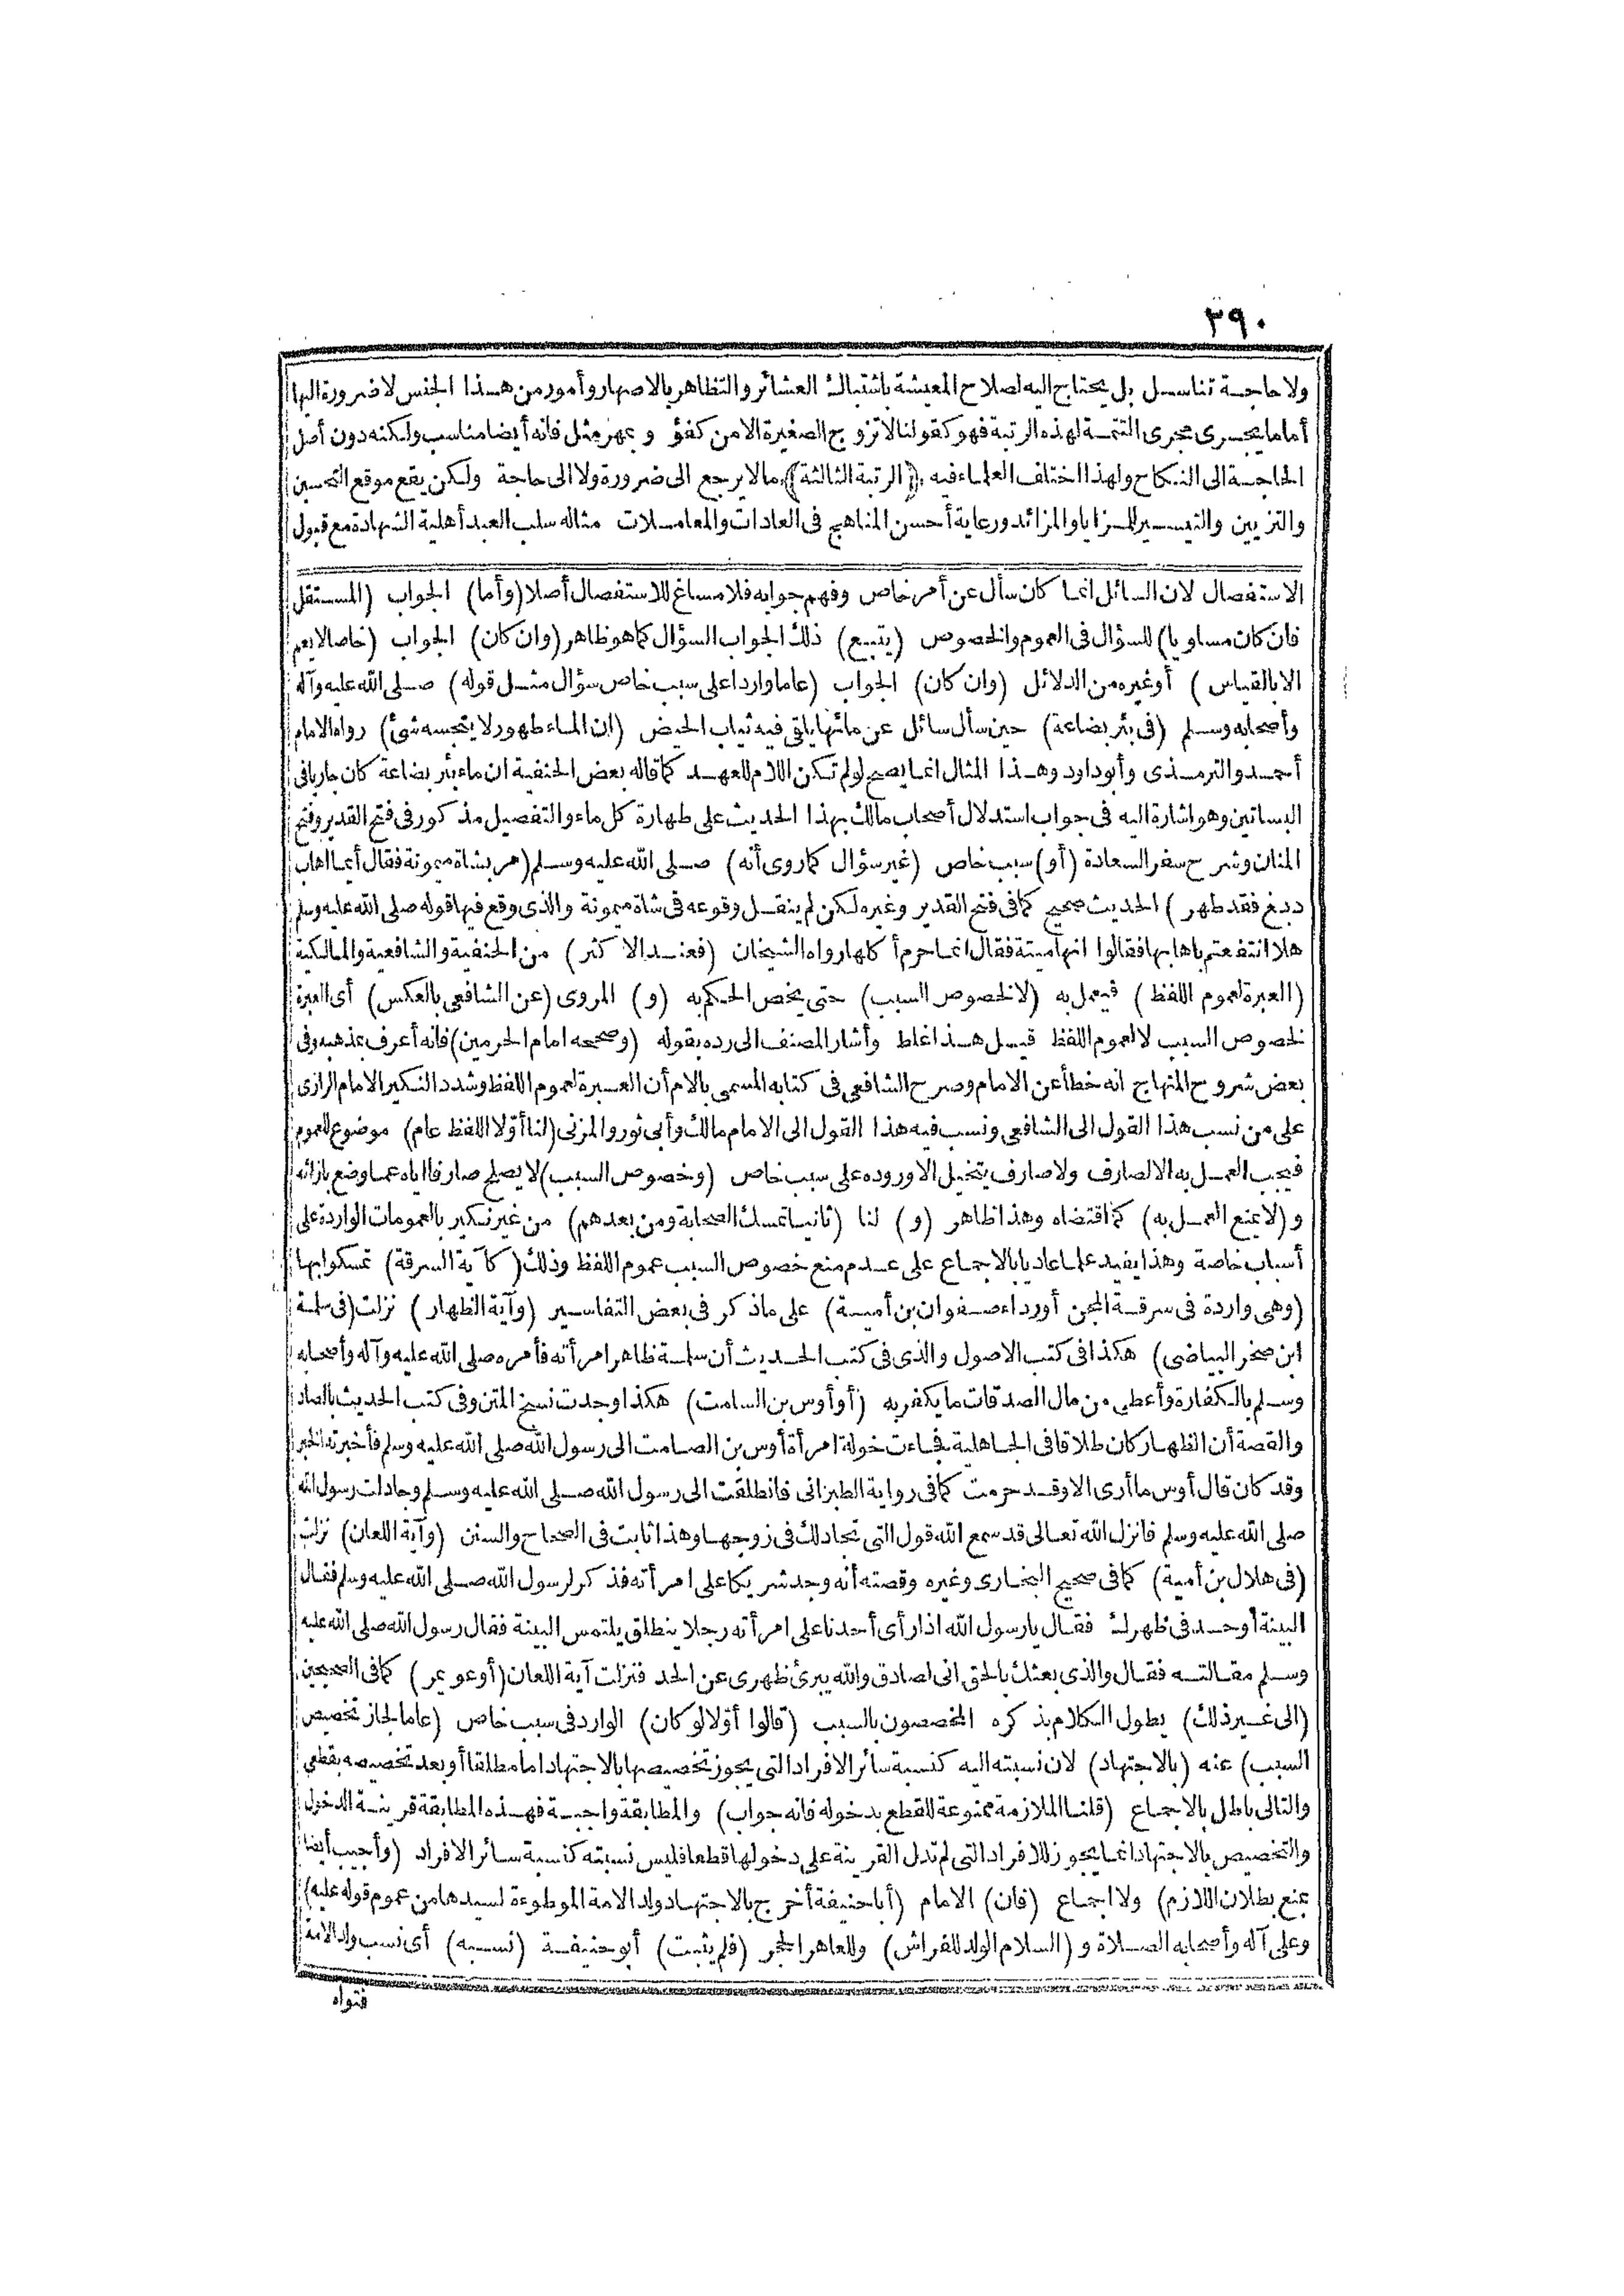 ٢٩٠
ولا حاجة تناسل بل يحتاج اليه لصلاح المعيشة باشتباك العشائر والتظاهر بالاصهار وأمور من هذا الجنس لا ضرورة اليها
أما ما يجرى مجرى التتمة لهذه الرتبة فهو كقولنا لا تزوج الصغيرة الا من كفؤ و بمهر مثل فانه أيضا مناسب ولكنه دون أصل
الحاجة الى النكاح ولهذا اختلف العلماء فيه ﴿الرتبة الثالثة﴾ ما لا يرجع الى ضرورة ولا الى حاجة ولكن يقع موقع التحسين
والتزيين والتيسير للمزايا والمزائد ورعاية أحسن المناهج فى العادات والمعاملات مثاله سلب العبد أهلية الشهادة مع قبول
الاستفصال لان السائل انما كان سأل عن أمر خاص وفهم جوابه فلا مساغ للاستفصال أصلا (وأما) الجواب (المستقل
فان كان مساويا) للسؤال فى العموم والخصوص (يتبع) ذلك الجواب السؤال كما هو ظاهر (وان كان) الجواب (خاصا لا يعم
الا بالقياس) أو غيره من الدلائل (وان كان) الجواب (عاما واردا على سبب خاص سؤال مثل قوله) صلى الله عليه وآله
وأصحابه وسلم (فى بئر بضاعة) حين سأل سائل عن مائها يلقى فيه ثياب الحيض (ان الماء طهور لا ينجسه شئ) رواه الامام
أحمد والترمذى وأبو داود وهذا المثال انما يصح لو لم تكن اللام للعهد كما قاله بعض الحنفية ان ماء بئر بضاعة كان جاريا فى
البساتين وهو اشارة اليه فى جواب استدلال أصحاب مالك بهذا الحديث على طهارة كل ماء والتفصيل مذكور فى فتح القدير وفتح
المنان وشرح سفر السعادة (أو) سبب خاص (غير سؤال كما روى أنه) صلى الله عليه وسلم (مر بشاة ميمونة فقال أيما اهاب
دبغ فقد طهر) الحديث صحيح كما فى فتح القدير وغيره لكن لم ينقل وقوعه فى شاة ميمونة والذى وقع فيها قوله صلى الله عليه وسلم
هلا انتفعتم باهابها فقالوا انها ميتة فقال انما حرم أكلها رواه الشيخان (فعند الاكثر) من الحنفية والشافعية والمالكية
(العبرة لعموم اللفظ) فيعمل به (لا لخصوص السبب) حتى يخص الحكم به (و) المروى (عن الشافعى بالعكس) أى العبرة
لخصوص السبب لا لعموم اللفظ قيل هذا غلط وأشار المصنف الى رده بقوله (وصححه امام الحرمين) فانه أعرف بمذهبه وفى
بعض شروح المنهاج انه خطأ عن الامام وصرح الشافعى فى كتابه المسمى بالام أن العبرة لعموم اللفظ وشدد النكير الامام الرازى
على من نسب هذا القول الى الشافعى ونسب فيه هذا القول الى الامام مالك وأبى ثور والمزنى (لنا أوّلا اللفظ عام) موضوع للعموم
فيجب العمل به الا لصارف ولا صارف يتخيل الا وروده على سبب خاص (وخصوص السبب) لا يصلح صارفا اياه عما وضع بازائه
و (لا يمنع العمل به) كما اقتضاه وهذا ظاهر (و) لنا (ثانيا تمسك الصحابة ومن بعدهم) من غير نكير بالعمومات الواردة على
أسباب خاصة وهذا يفيد علما عاديا بالاجماع على عدم منع خصوص السبب عموم اللفظ وذلك (كآية السرقة) تمسكوا بها
(وهى واردة فى سرقة المجن أو رداء صفوان بن أمية) على ما ذكر فى بعض التفاسير (وآية الظهار) نزلت (فى سلمة
ابن صخر البياضى) هكذا فى كتب الاصول والذى فى كتب الحديث أن سلمة ظاهر امرأته فأمره صلى الله عليه وآله وأصحابه
وسلم بالكفارة وأعطى من مال الصدقات ما يكفر به (أو أوس بن السامت) هكذا وجدت نسخ المتن وفى كتب الحديث بالصاد
والقصة أن الظهار كان طلاقا فى الجاهلية فجاءت خولة امرأة أوس بن الصامت الى رسول الله صلى الله عليه وسلم فأخبرته الخبر
وقد كان قال أوس ما أرى الا وقد حرمت كما فى رواية الطبرانى فانطلقت الى رسول الله صلى الله عليه وسلم وجادلت رسول الله
صلى الله عليه وسلم فانزل الله تعالى قد سمع الله قول التى تجادلك فى زوجها وهذا ثابت فى الصحاح والسنن (وآية اللعان) نزلت
(فى هلال بن أمية) كما فى صحيح البخارى وغيره وقصته أنه وجد شريكا على امرأته فذكر لرسول الله صلى الله عليه وسلم فقال
البينة أو حد فى ظهرك فقال يا رسول الله اذا رأى أحدنا على امرأته رجلا ينطلق يلتمس البينة فقال رسول الله صلى الله عليه
وسلم مقالته فقال والذى بعثك بالحق انى لصادق والله يبرئ ظهرى عن الحد فنزلت آية اللعان (أو عويمر) كما فى الصحيحين
(الى غير ذلك) يطول الكلام بذكره المخصصون بالسبب (قالوا أوّلا لو كان) الوارد فى سبب خاص (عاما لجاز تخصيص
السبب) عنه (بالاجتهاد) لان نسبته اليه كنسبة سائر الافراد التى يجوز تخصيصها بالاجتهاد اما مطلقا أو بعد تخصيصه بقطعى
والتالى باطل بالاجماع (قلنا الملازمة ممنوعة للقطع بدخوله فانه جواب) والمطابقة واجبة فهذه المطابقة قرينة الدخول
والتخصيص بالاجتهاد انما يجوز للافراد التى لم تدل القرينة على دخولها قطعا فليس نسبته كنسبة سائر الافراد (وأجيب أيضا
بمنع بطلان اللازم) ولا اجماع (فان) الامام (أبا حنيفة أخرج بالاجتهاد ولد الامة الموطوءة لسيدها من عموم قوله عليه)
وعلى آله وأصحابه الصلاة و (السلام الولد للفراش) وللعاهر الحجر (فلم يثبت) أبو حنيفة (نسبه) أى نسب ولد الامة
فتواه